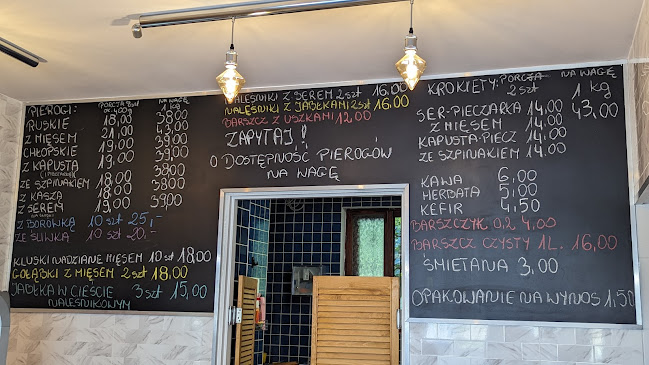 PIEROGI: PORCJA 8szt NA WAGĘ
ok. 400g 1 kg
RUSKIE 18,00 38,00
Z MIĘSEM 21,00 43,00
CHŁOPSKIE 19,00 39,00
Z KAPUSTĄ 19,00 39,00
ZE SZPINAKIEM 18,00 38,00
Z KASZĄ 18,00 38,00
Z SEREM 19,00 39,00
Z BORÓWKĄ 10 szt 25,-
ZE ŚLIWKĄ 10 szt 20,-
KLUSKI NADZIANE MIĘSEM 10 szt 18,00
GOŁĄBKI Z MIĘSEM 2 szt 18,00
JABŁKA W CIEŚCIE 3 szt 15,00
NALEŚNIKOWYM
NALEŚNIKI Z SEREM 2 szt 16.00
NALEŚNIKI Z JABŁKAMI 2 szt 16.00
BARSZCZ Z USZKAMI 12,00
ZAPYTAJ!
O DOSTĘPNOŚĆ PIEROGÓW
NA WAGĘ
KROKIETY: PORCJA NA WAGĘ
2 szt 1 kg
SER-PIECZARKA 14,00 43,00
Z MIĘSEM 14,00
KAPUSTA-PIECZ 14,00
ZE SZPINAKIEM 14,00
KAWA 6,00
HERBATA 5,00
KEFIR 4,50
BARSZCZYK 0,2 4,00
BARSZCZ CZYSTY 1L. 16,00
ŚMIETANA 3,00
OPAKOWANIE NA WYNOS 1,50